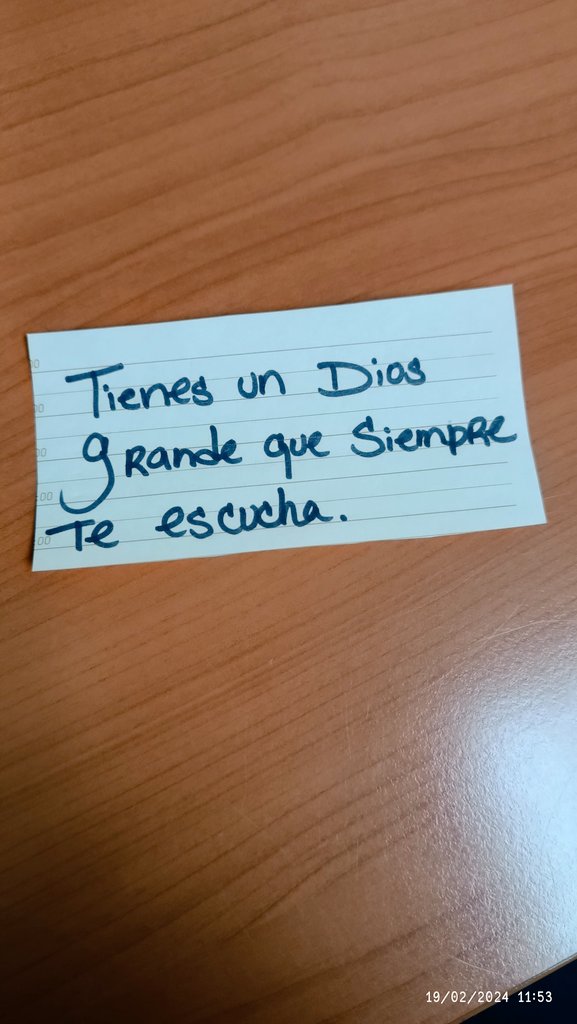 Tienes un Dios
grande que siempre
Te escucha.
:00
00
19/02/2024 11:53